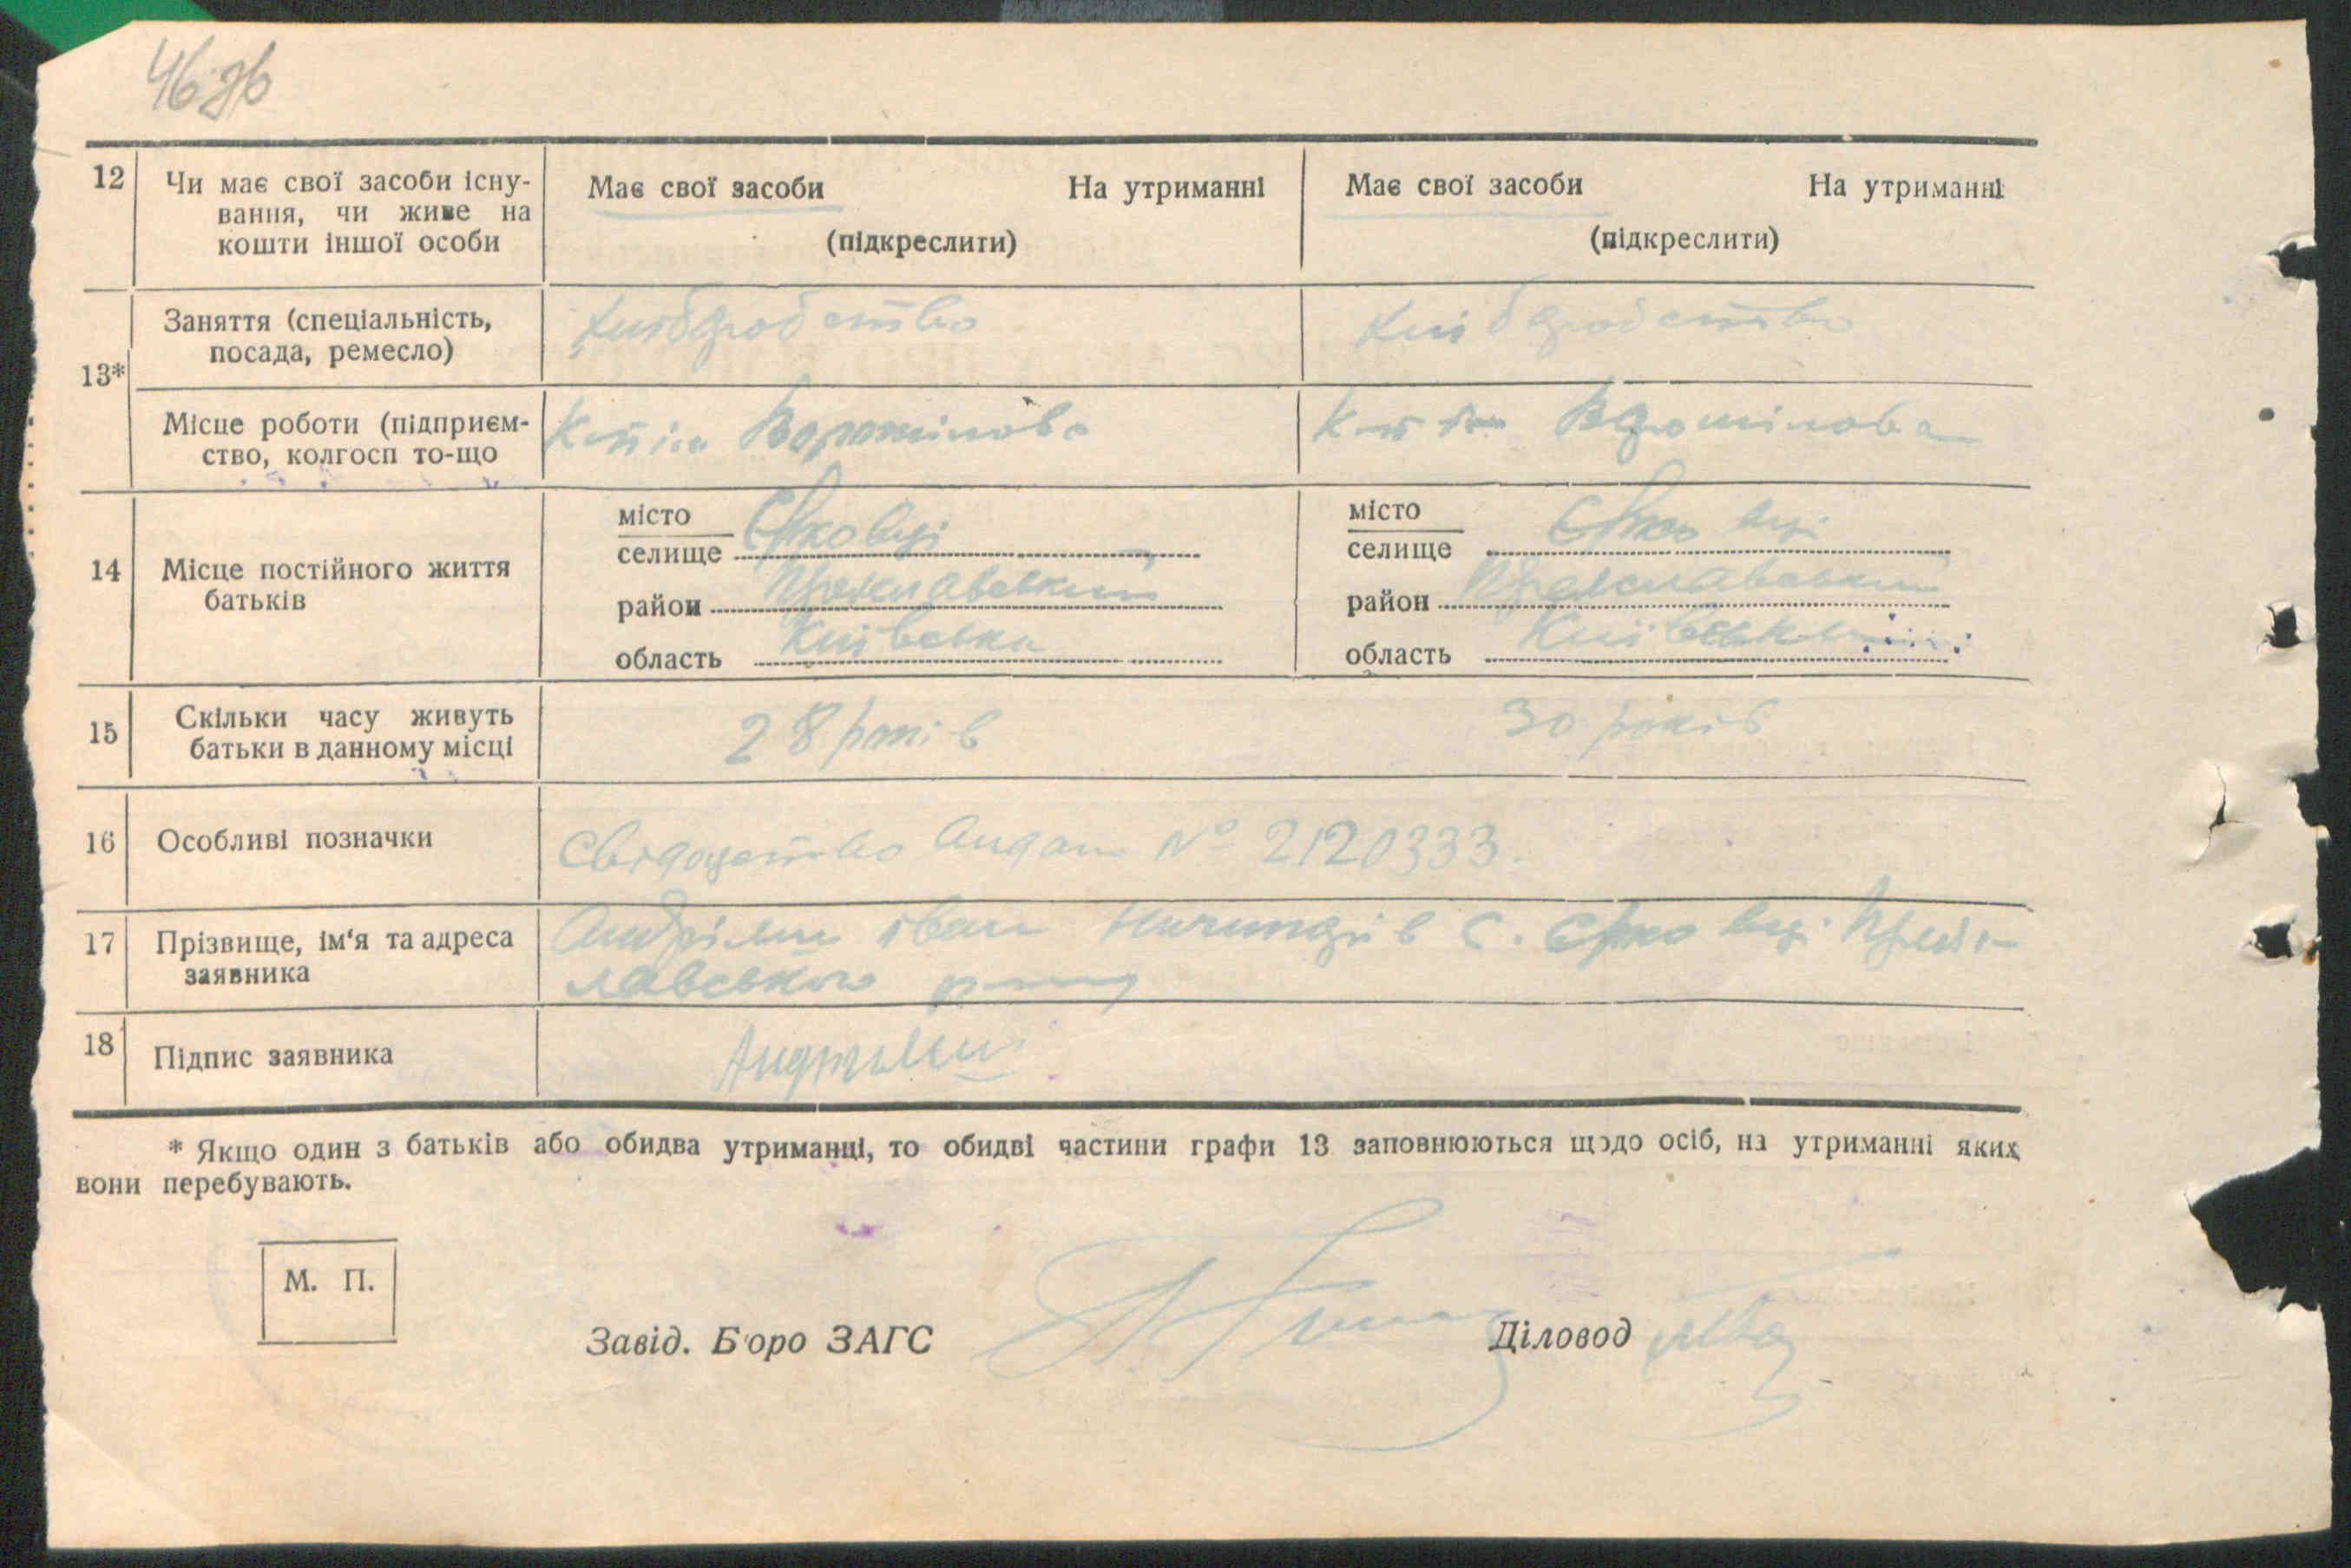 46 зв
12 Чи має свої засоби існу- Має свої засоби На утриманні Має свої засоби На утриманні
вання, чи живе на
кошти іншої особи (підкреслити) (підкреслити)
Заняття (спеціальність, хлібородство хлібородство
посада, ремесло)
13*
Місце роботи (підприєм- Ворошилова Ворошилова
ство, колгосп то-що
14 Місце постійного життя
батьків
місто
селище Єрковці
район Переяславський
область Київська
місто
селище Єрковці
район Переяславський
область Київська
15 Скільки часу живуть 28 років 30 років
батьки в данному місці
16 Особливі позначки Свідоцтво видано № 2120333
17 Прізвище, ім'я та адреса Андріяш Іван с. Єрковці Переяс-
заявника лавського району
18 Підпис заявника Андрияш
* Якщо один з батьків або обидва утриманці, то обидві частини графи 13 заповнюються щодо осіб, на утриманні яких
вони перебувають.
М. П.
Завід. Бюро ЗАГС Діловод